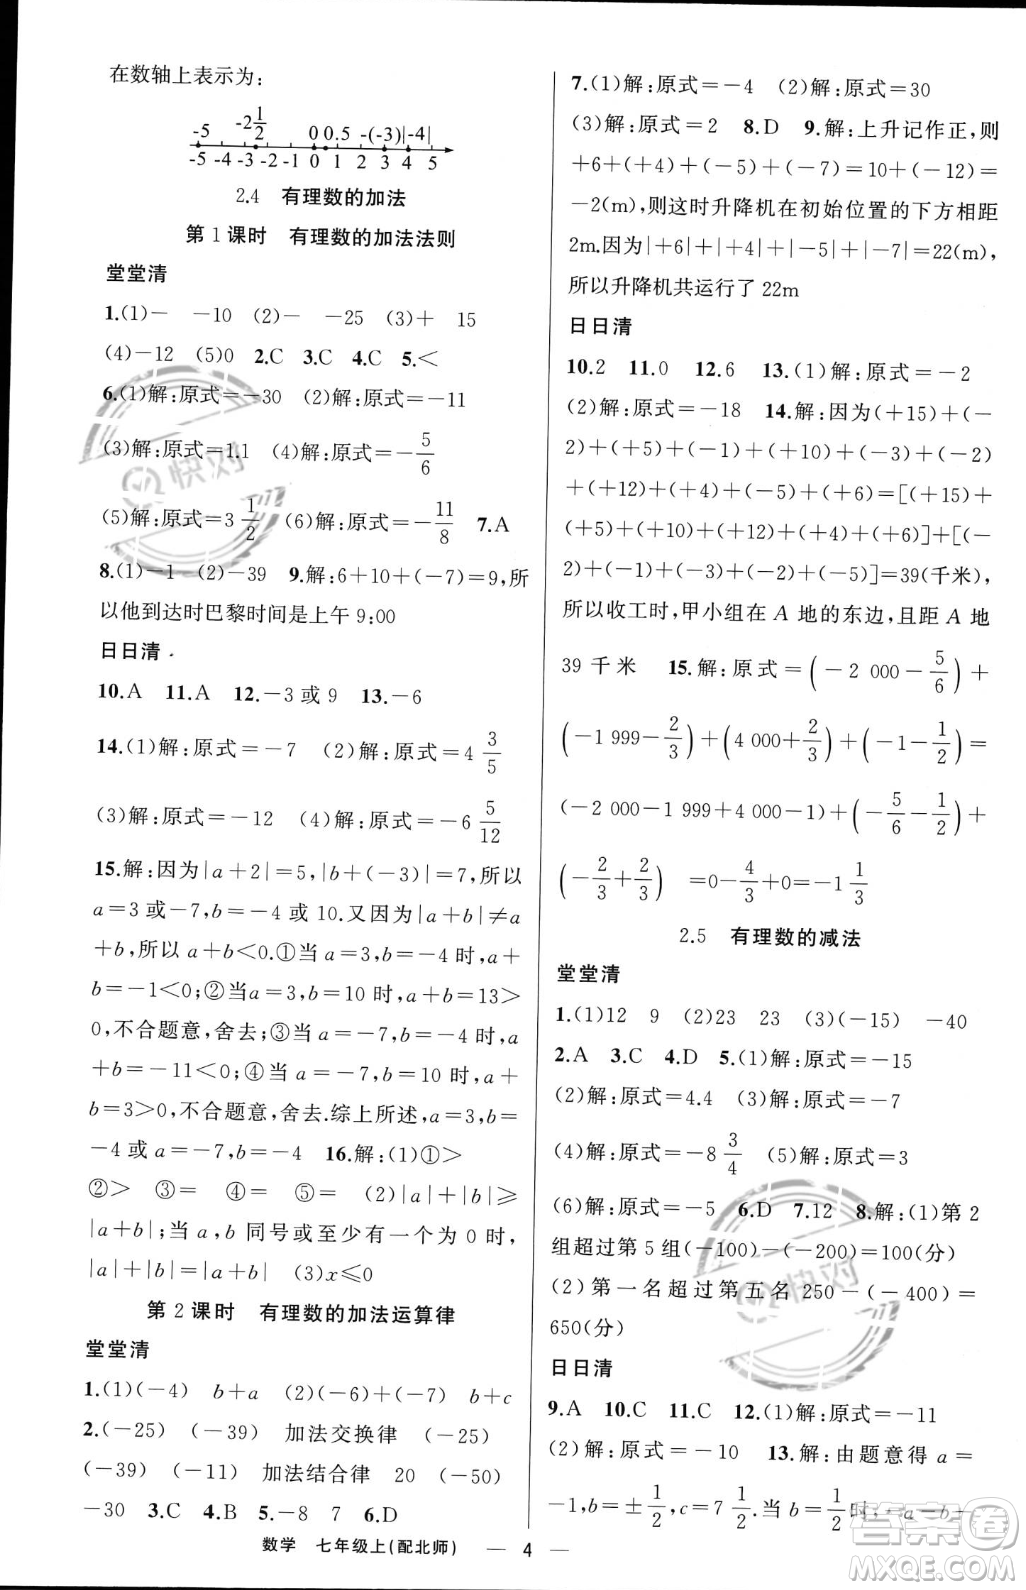 在数轴上表示为:
-5 -2 1/2 0 0.5 -(-3)|-4|
-5 -4 -3 -2 -1 0 1 2 3 4 5
2.4 有理数的加法
第1课时 有理数的加法法则
堂堂清
1.(1)- -10 (2)- -25 (3)+ 15
(4)-12 (5)0 2.C 3.C 4.C 5.<
6.(1)解:原式=-30 (2)解:原式=-11
(3)解:原式=1.1 (4)解:原式=-5/6
(5)解:原式=3 1/2 (6)解:原式=-11/8 7.A
8.(1)-1 (2)-39 9.解:6+10+(-7)=9,所
以他到达时巴黎时间是上午 9:00
日日清
10.A 11.A 12.-3或9 13.-6
14.(1)解:原式=-7 (2)解:原式=4 3/5
(3)解:原式=-12 (4)解:原式=-6 5/12
15.解:因为|a+2|=5,|b+(-3)|=7,所以
a=3或-7,b=-4或10.又因为|a+b|≠a
+b,所以a+b<0.①当a=3,b=-4时,a+
b=-1<0;②当a=3,b=10时,a+b=13>
0,不合题意,舍去;③当a=-7,b=-4时,a+
b=-11<0;④当a=-7,b=10时,a+
b=3>0,不合题意,舍去.综上所述,a=3,b=
-4或a=-7,b=-4 16.解:(1)①>
②> ③= ④= ⑤= (2)|a|+|b|≥
|a+b|;当a,b同号或至少有一个为0时,
|a|+|b|=|a+b| (3)x≤0
第2课时 有理数的加法运算律
堂堂清
1.(1)(-4) b+a (2)(-6)+(-7) b+c
2.(-25) (-39) 加法交换律 (-25)
(-39) (-11) 加法结合律 20 (-50)
-30 3.C 4.B 5.-8 7 6.D
7.(1)解:原式=-4 (2)解:原式=30
(3)解:原式=2 8.D 9.解:上升记作正,则
+6+(+4)+(-5)+(-7)=10+(-12)=
-2(m),则这时升降机在初始位置的下方相距
2m.因为|+6|+|+4|+|-5|+|-7|=22(m),
所以升降机共运行了22m
日日清
10.2 11.0 12.6 13.(1)解:原式=-2
(2)解:原式=-18 14.解:因为(+15)+(-
2)+(+5)+(-1)+(+10)+(-3)+(-2)
+(+12)+(+4)+(-5)+(+6)=[(+15)+
(+5)+(+10)+(+12)+(+4)+(+6)]+[(-
2)+(-1)+(-3)+(-2)+(-5)]=39(千米),
所以收工时,甲小组在A地的东边,且距A地
39千米 15.解:原式=(-2 000-5/6)+
(-1 999-2/3)+(4 000+2/3)+(-1-1/2)=
(-2 000-1 999+4 000-1)+(-5/6-1/2)+
(-2/3+2/3) =0-4/3+0=-1 1/3
2.5 有理数的减法
堂堂清
1.(1)12 9 (2)23 23 (3)(-15) -40
2.A 3.C 4.D 5.(1)解:原式=-15
(2)解:原式=4.4 (3)解:原式=-7
(4)解:原式=-8 3/4 (5)解:原式=3
(6)解:原式=-5 6.D 7.12 8.解:(1)第2
组超过第5组(-100)-(-200)=100(分)
(2)第一名超过第五名250-(-400)=
650(分)
日日清
9.A 10.C 11.C 12.(1)解:原式=-11
(2)解:原式=-10 13.解:由题意得a=
-1,b=±1/2,c=7 1/2.当b=1/2时,-a-b-
数学 七年级上(配北师) — 4 —